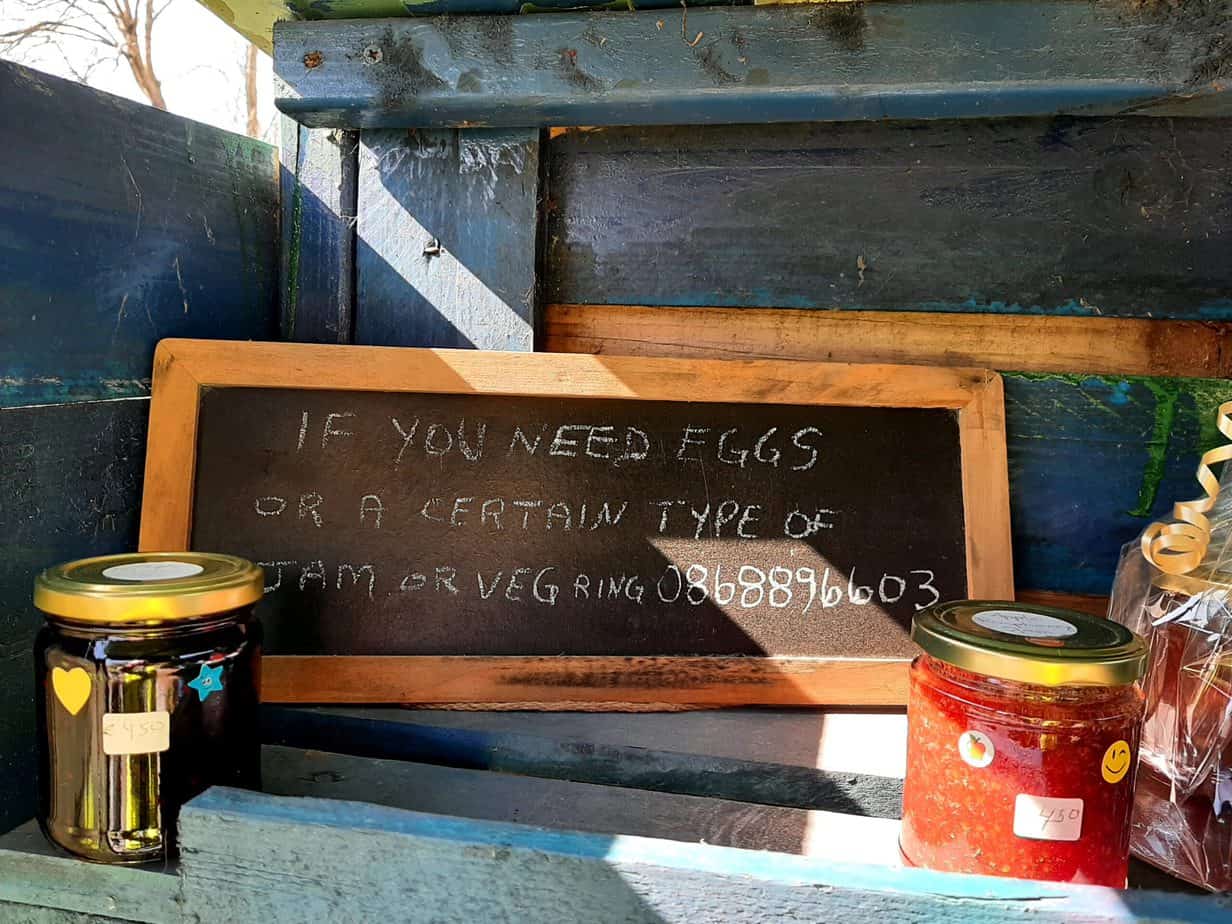 IF YOU NEED EGGS
OR A CERTAIN TYPE OF
JAM OR VEG RING 0868896603
€450
450